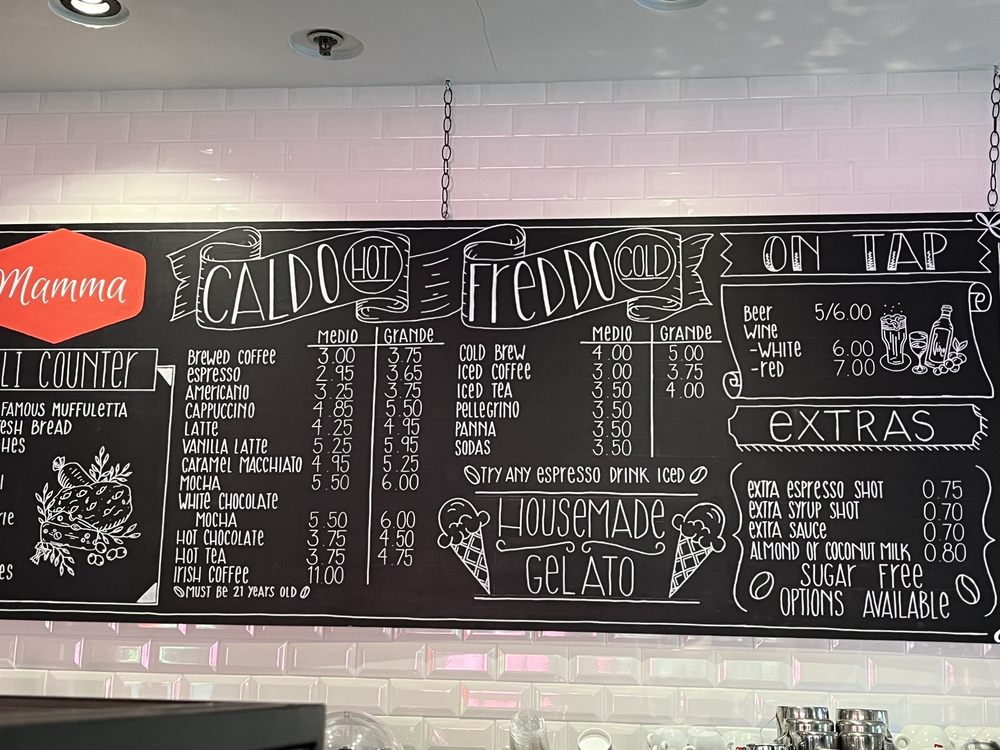 Mamma
LI COUNTER
FAMOUS MUFFULETTA
ESH BREAD
HES
CALDO HOT
MEDIO GRANDE
BREWED COFFEE 3.00 3.75
ESPRESSO 2.95 3.65
AMERICANO 3.25 3.75
CAPPUCCINO 4.85 5.50
LATTE 4.25 4.95
VANILLA LATTE 5.25 5.95
CARAMEL MACCHIATO 4.95 5.25
MOCHA 5.50 6.00
WHITE CHOCOLATE
MOCHA 5.50 6.00
HOT CHOCOLATE 3.75 4.50
HOT TEA 3.75 4.75
IRISH COFFEE 11.00
MUST BE 21 YEARS OLD
FREDDO COLD
MEDIO GRANDE
COLD BREW 4.00 5.00
ICED COFFEE 3.00 3.75
ICED TEA 3.50 4.00
PELLEGRINO 3.50
PANNA 3.50
SODAS 3.50
TRY ANY ESPRESSO DRINK ICED
HOUSEMADE
GELATO
ON TAP
BEER 5/6.00
WINE
-WHITE 6.00
-RED 7.00
EXTRAS
EXTRA ESPRESSO SHOT 0.75
EXTRA SYRUP SHOT 0.70
EXTRA SAUCE 0.70
ALMOND OR COCONUT MILK 0.80
SUGAR FREE
OPTIONS AVAILABLE